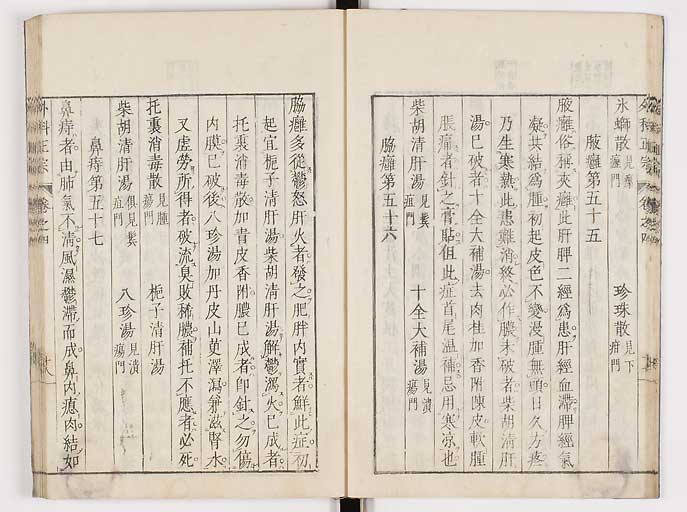 氷螄散見瘰癧門　珍珠散見下疳門
腋癰第五十五
腋癰俗稱夾癰此肝脾二經為患肝經血滯脾經氣
凝共結為腫初起皮色不變漫腫無頭日久方疼
乃生寒熱此患難消終必作膿未破者柴胡清肝
湯已破者十全大補湯去肉桂加香附陳皮軟腫
脹痛者針之膏貼但此症首尾溫補忌用寒涼也
柴胡清肝湯見鬢疽門　十全大補湯見潰瘍門
脇癰第五十六
脇癰多從鬱怒肝火者發之肥胖內實者鮮此症初
起宜梔子清肝湯柴胡清肝湯解鬱瀉火已成者
托裏消毒散加青皮香附膿已成者即針之勿傷
內膜已破後八珍湯加丹皮山萸澤瀉兼滋腎水
又虛勞所得者破流臭敗稀膿補托不應者必死
托裏消毒散見腫瘍門　梔子清肝湯
柴胡清肝湯俱見鬢疽門　八珍湯見潰瘍門
鼻痔第五十七
鼻痔者由肺氣不清風濕鬱滯而成鼻內瘜肉結如
外科正宗　卷之四